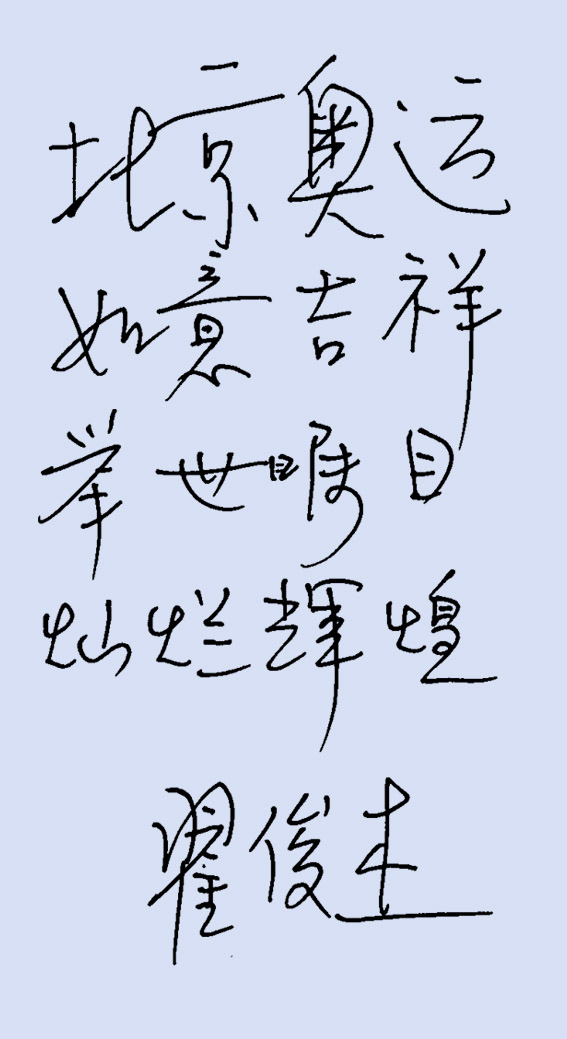 北京奥运
如意吉祥
举世瞩目
灿烂辉煌
翟俊杰